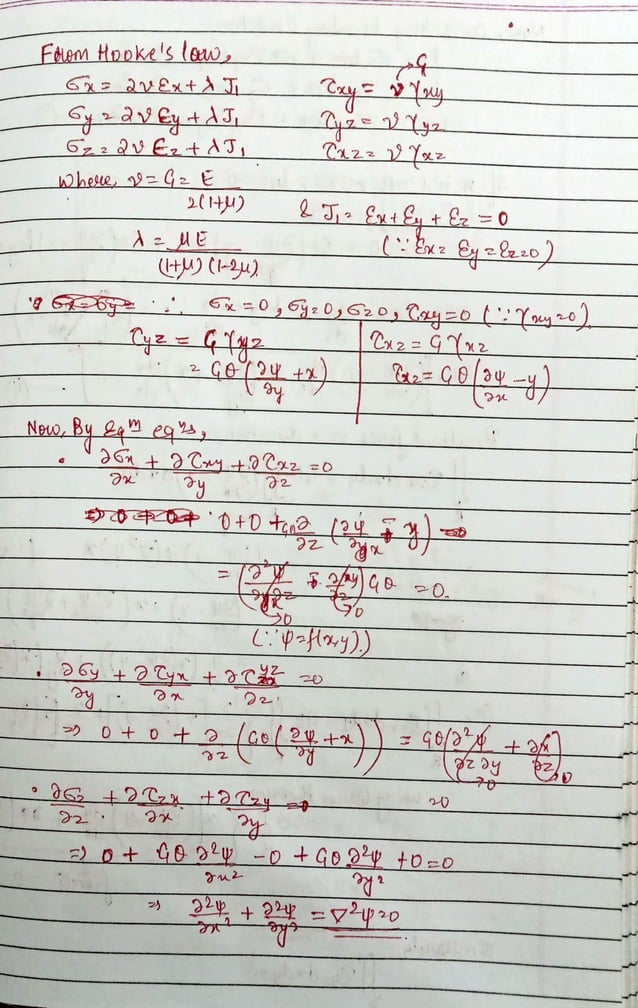 From Hooke's law,
σx = 2νεx + λJ₁   τxy = ν γxy → G
σy = 2νεy + λJ₁   τyz = ν γyz
σz = 2νεz + λJ₁   τxz = ν γxz
where, ν = G = E / 2(1+μ)
& J₁ = εx + εy + εz = 0
λ = μE / (1+μ)(1-2μ)   (∵ εx = εy = εz = 0)
∴ σx = 0, σy = 0, σz = 0, τxy = 0 (∵ γxy = 0)
τyz = G γyz   τxz = G γxz
= Gθ(∂ψ/∂y + x)   τxz = Gθ(∂ψ/∂x - y)
Now, By Eqm eqns,
• ∂σx/∂x + ∂τxy/∂y + ∂τxz/∂z = 0
0 + 0 + Gθ ∂/∂z (∂ψ/∂x - y)
= (∂²ψ/∂x∂z - ∂y/∂z) Gθ = 0.
→0 →0
(∵ ψ = f(x,y).)
• ∂σy/∂y + ∂τyx/∂x + ∂τyz/∂z = 0
⇒ 0 + 0 + ∂/∂z (Gθ(∂ψ/∂y + x)) = Gθ(∂²ψ/∂z∂y + ∂x/∂z)
→0 →0
= 0
• ∂σz/∂z + ∂τzx/∂x + ∂τzy/∂y = 0
⇒ 0 + Gθ ∂²ψ/∂x² - 0 + Gθ ∂²ψ/∂y² + 0 = 0
⇒ ∂²ψ/∂x² + ∂²ψ/∂y² = ∇²ψ = 0